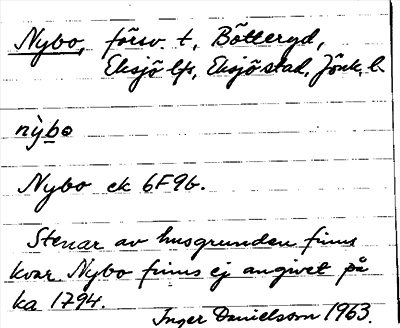 Nybo, försv. t. Bötteryd,
Eksjö lfs, Eksjö stad, Jönk. l.
nỳbo
Nybo ek 6F9b.
Stenar av husgrunden finns
kvar. Nybo finns ej angivet på
ka 1794.
Inger Danielsson 1963.